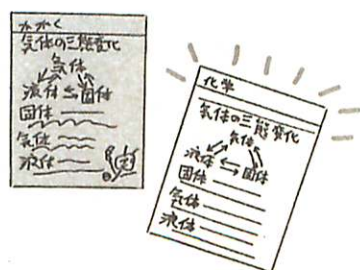 かがく
気体の三態変化
気体
液体 ⇆ 固体
固体
気体
液体
化学
気体の三態変化
気体
液体 ⇆ 固体
固体
気体
液体